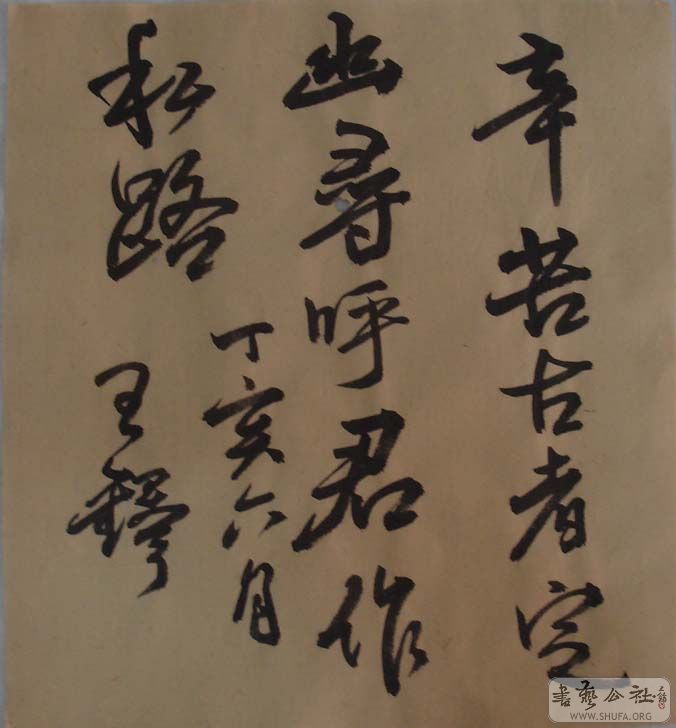 辛苦古者空
幽尋呼君作
私路
丁亥六月
王
書藝公社
WWW.SHUFA.ORG